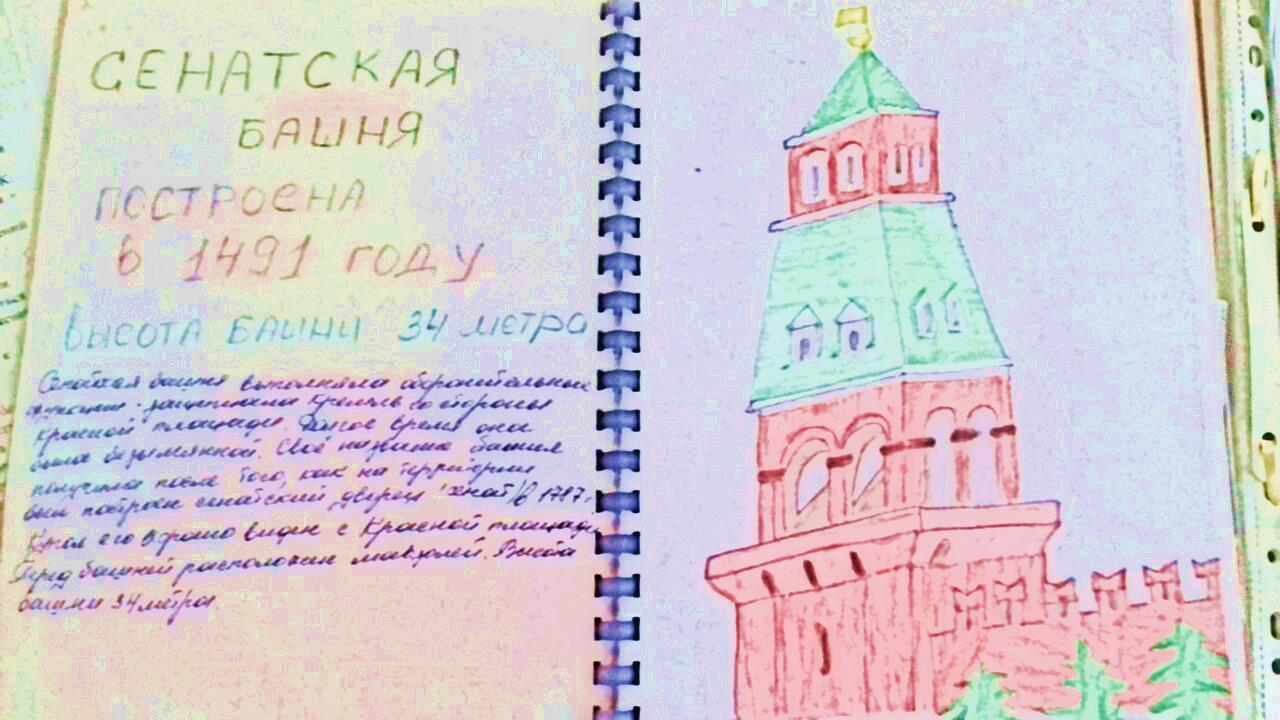 СЕНАТСКАЯ
БАШНЯ
ПОСТРОЕНА
В 1491 ГОДУ
ВЫСОТА БАШНИ 34 метра
Сенатская башня выполняла оборонительные
функции - защищала Кремль со стороны
Красной площади. Долгое время она
была безымянной. Своё название башня
получила после того, как на территории
был построен сенатский дворец (сенат) в 1787 г.
Купол его хорошо виден с Красной площади.
Перед башней расположен мавзолей. Высота
башни 34 метра